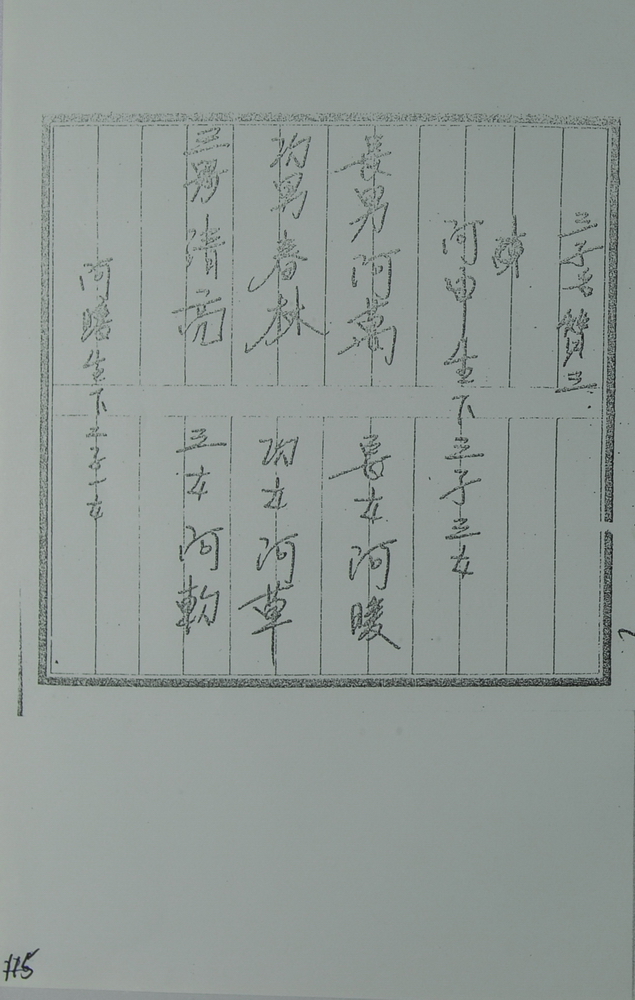 三子名贊三
陳
阿申生下三子三女
長男阿萬
長女阿暖
次男春林
次女阿草
三男清高
三女阿勤
阿賠生下三子一女
115